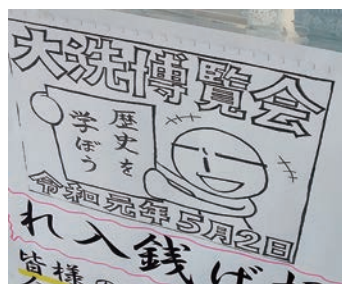 大洗博覧会
歴史を
学ぼう
令和元年5月2日
れ入銭げ
皆様